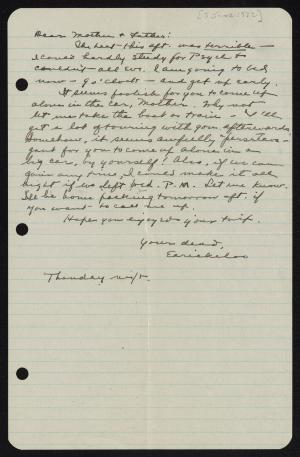 Dear Mother & Father:
The heat this aft. was terrible —
I could hardly study for Psych &
couldn't - all eve. I am going to bed
now - 9 o'clock - and get up early.
It seems foolish for you to come up
alone in the car, Mother. Why not
let me take the boat or train - I'll
get a lot of touring with you afterwards.
Somehow, it seems awfully
for you to come up alone in a
big car, by yourself! Also, if we can
gain any time, I could make it all
right if we left Wed. P.M. Let me know.
I'll be home packing tomorrow aft. if
you want to call me up.
Hope you enjoyed your trip.
Your dead,
Thursday night.